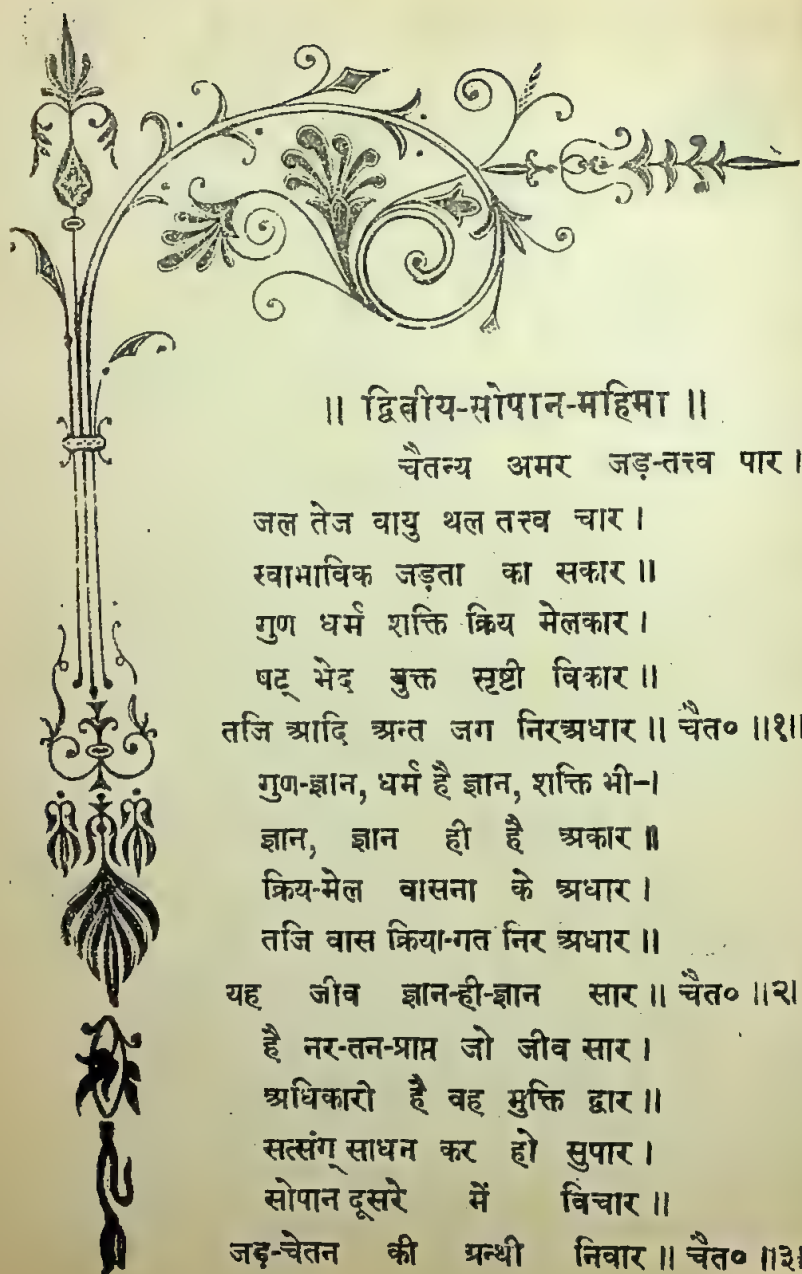 ॥ द्वितीय-सोपान-महिमा ॥
चैतन्य अमर जड़-तत्त्व पार ।
जल तेज वायु थल तत्त्व चार ।
स्वाभाविक जड़ता का सकार ॥
गुण धर्म शक्ति क्रिय मेलकार ।
षट् भेद युक्त सृष्टी विकार ॥
तजि आदि अन्त जग निरअधार ॥ चैत० ॥१॥
गुण-ज्ञान, धर्म है ज्ञान, शक्ति भी-।
ज्ञान, ज्ञान ही है अकार ॥
क्रिय-मेल वासना के अधार ।
तजि वास क्रिया-गत निर अधार ॥
यह जीव ज्ञान-ही-ज्ञान सार ॥ चैत० ॥२।
है नर-तन-प्राप्त जो जीव सार ।
अधिकारो है वह मुक्ति द्वार ॥
सत्संग् साधन कर हो सुपार ।
सोपान दूसरे में विचार ॥
जड़-चेतन की ग्रन्थी निवार ॥ चैत० ॥३।